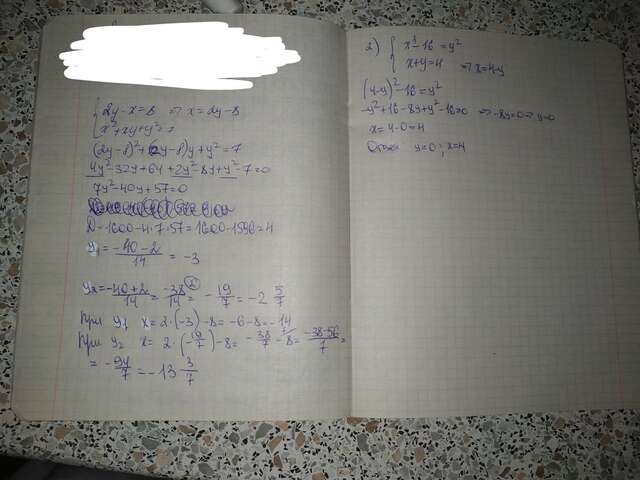 { 2y-x=8 => x=2y-8
x²+xy+y²=7
(2y-8)²+(2y-8)y+y²=7
4y²-32y+64+2y²-8y+y²-7=0
7y²-40y+57=0
D=1600-4·7·57=1600-1596=4
y₁=\frac{-40-2}{14}=-3
y₂=\frac{-40+2}{14}=\frac{-38}{14}=-\frac{19}{7}=-2\frac{5}{7}
При y₁ x=2·(-3)-8=-6-8=-14
При y₂ x=2·(-\frac{19}{7})-8=-\frac{38}{7}-8=\frac{-38-56}{7}=
=-\frac{94}{7}=-13\frac{3}{7}
2) { x²-16=y²
x+y=4 => x=4-y
(4-y)²-16=y²
-y²+16-8y+y²-16=0 => -8y=0 => y=0
x=4-0=4
Ответ: y=0; x=4